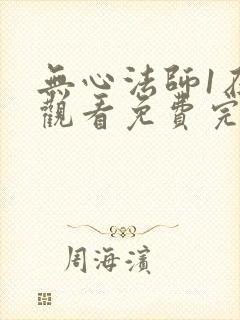 無心法師1在
觀看免費完
周海濱